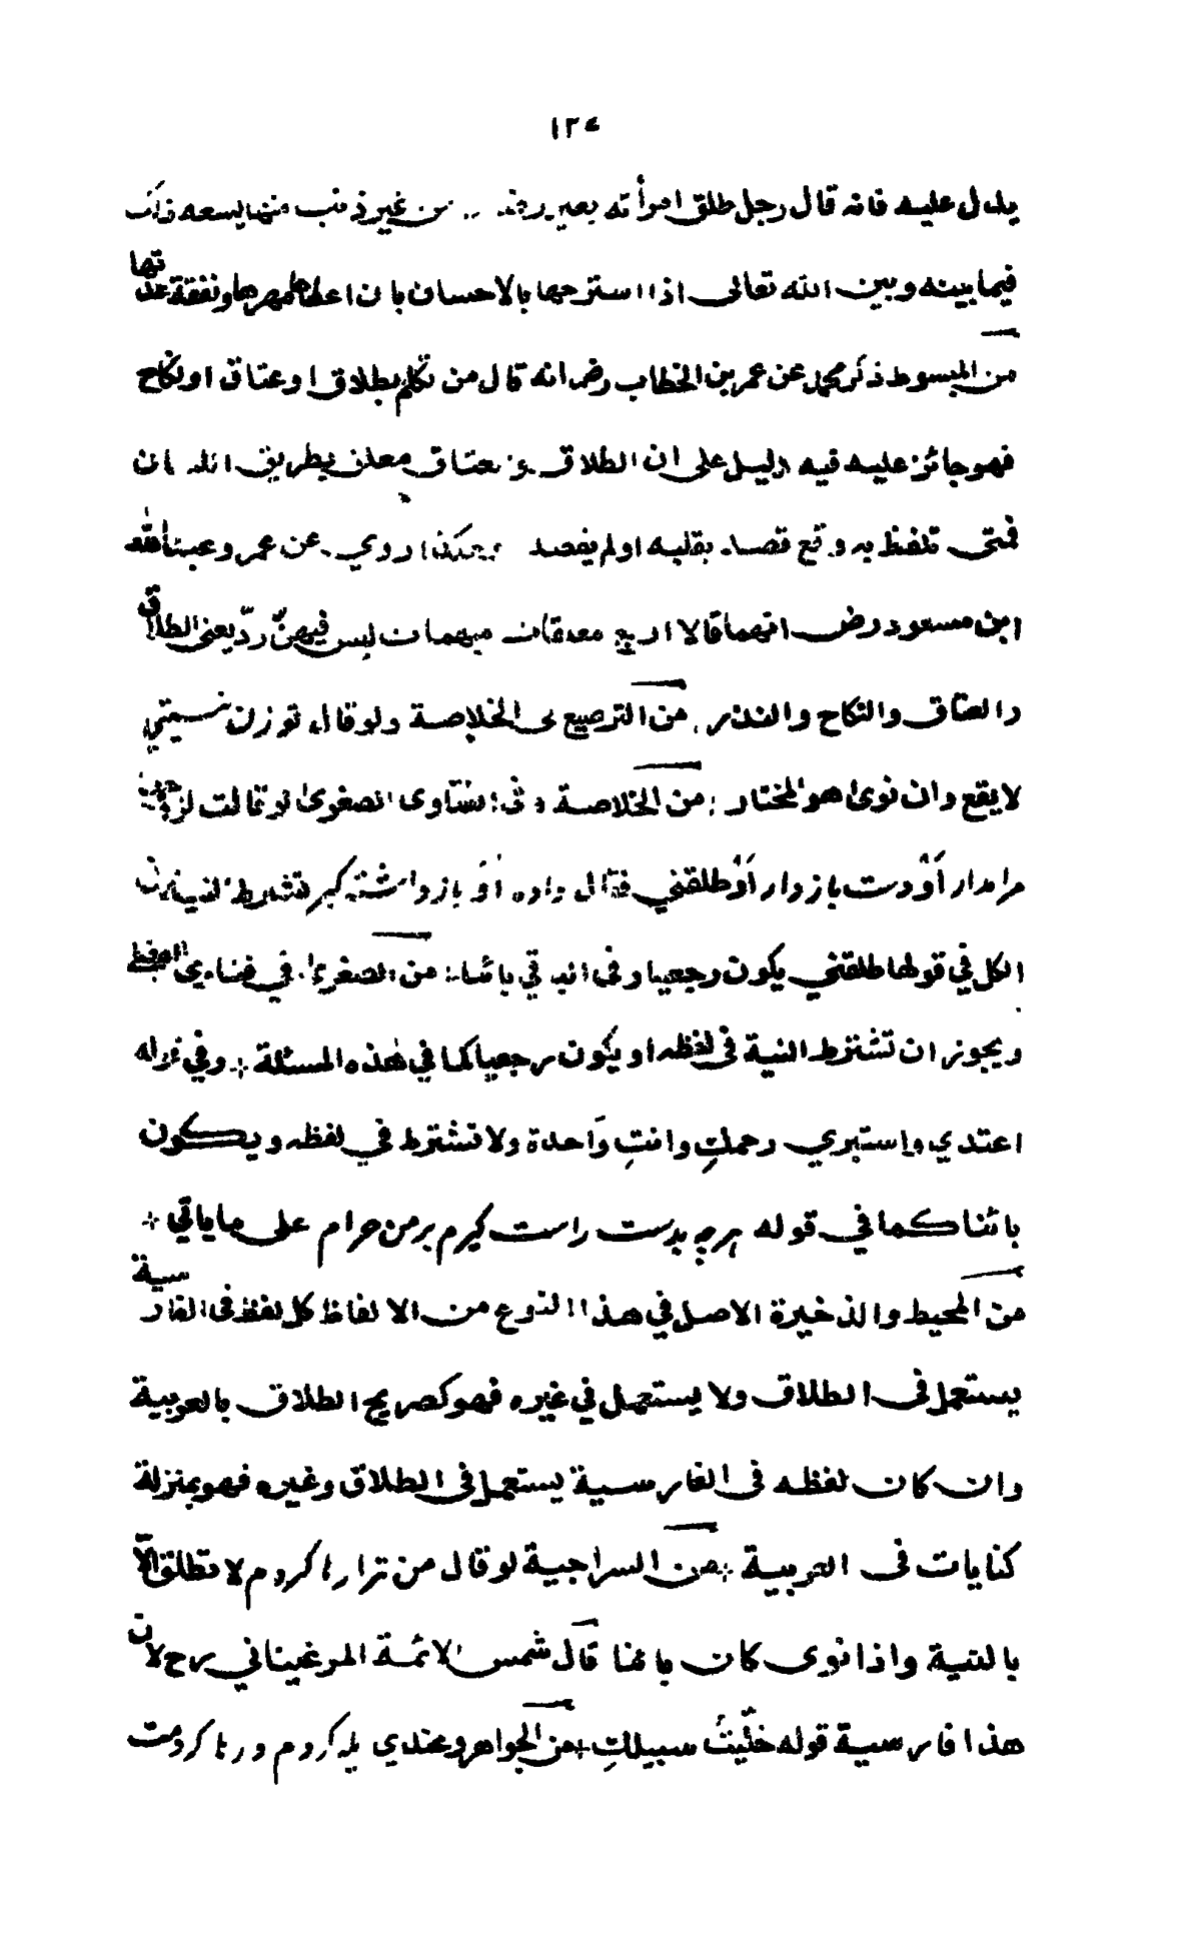 ١٣٤
يدل عليه فانه قال رجل طلق امرأته بغير من غير ذنب منها يسعه ذلك
فيما بينه وبين الله تعالى اذا استرجها بالاحسان بان اعطاها مهرها ونفقة عدتها
من المبسوط ذكر محمد عن عمر بن الخطاب رض انه قال من تكلم بطلاق او عتاق او نكاح
فهو جائز عليه فيه دليل على ان الطلاق معلق بطريق ان
فمتى تلفظ به وقع قصد بقلبه اولم يقصد هكذا روي عن عمر وعبد الله
ابن مسعود رض انهما قالا اربع مبهمات ليس فيهنّ ردّ يعني الطلاق
والعتاق والنكاح والنذر من الترصيع لو قال تو زن نسيتي
لا يقع وان نوى هو المختار من الخلاصة وفي الفتاوى الصغرى لو قالت
مرا مدار أو دست باز دار أو طلقني فقال
الكل في قولها طلقني يكون رجعيا وفى قي بائنا من الصغرى في فتاوى
ويجوز ان تشترط النية فى لفظه او يكون رجعيا كما في هذه المسئلة وفي قوله
اعتدي واستبري رحمكِ وانتِ وَاحدة ولا تشترط في لفظه ويكون
بائنا كما في قوله هرچه بدست راست كيرم بر من حرام على ما ياتي
من المحيط والذخيرة الاصل في هذا النوع من الالفاظ كل لفظ فى الفارسية
يستعمل فى الطلاق ولا يستعمل في غيره فهو كصريح الطلاق بالعربية
وان كان لفظه فى الفارسية يستعمل فى الطلاق وغيره فهو بمنزلة
كنايات فى العربية من السراجية لو قال من ترا رها كردم لا تطلق الّا
بالنية واذا نوى كان بائنا قال شمس الائمة المرغيناني رح لان
هذا فارسية قوله خلّيتُ سبيلكِ من الجواهر و يله كردم ورها كردمت